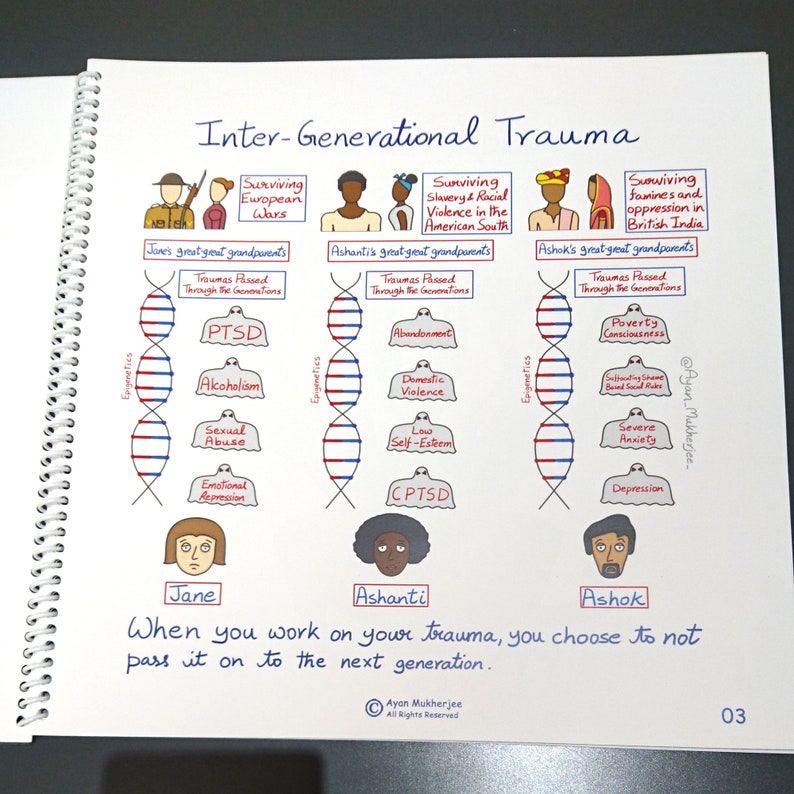 Inter-Generational Trauma
Surviving
European
Wars
Jane's great-great grandparents
Surviving
Slavery & Racial
Violence in the
American South
Ashanti's great-great grandparents
Surviving
famines and
oppression in
British India
Ashok's great-great grandparents
Traumas Passed
Through the Generations
Epigenetics
PTSD
Alcoholism
Sexual
Abuse
Emotional
Repression
Jane
Traumas Passed
Through the Generations
Epigenetics
Abandonment
Domestic
Violence
Low
Self-Esteem
CPTSD
Ashanti
Traumas Passed
Through the Generations
Epigenetics
Poverty
Consciousness
Suffocating Shame
Based Social Rules
Severe
Anxiety
Depression
Ashok
@Ayan_Mukherjee_
When you work on your trauma, you choose to not
pass it on to the next generation.
© Ayan Mukherjee
All Rights Reserved
03